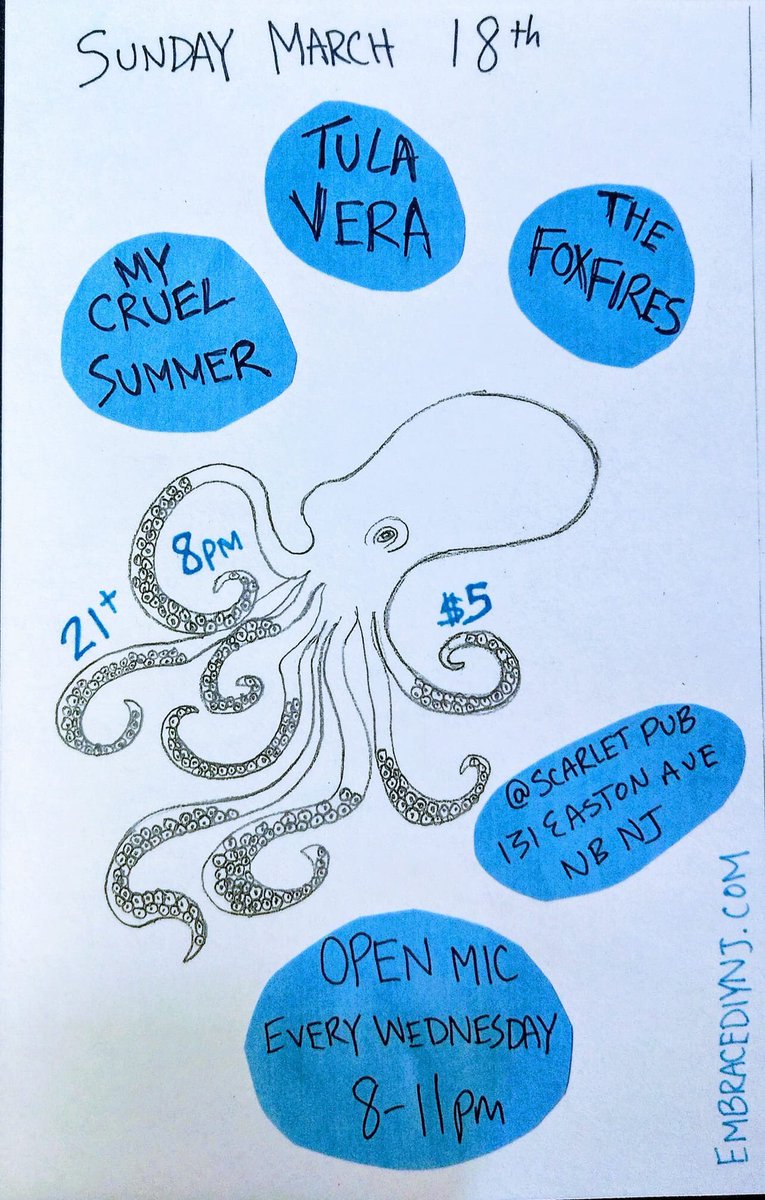 SUNDAY MARCH 18th
TULA
VERA
THE
FOXFIRES
MY
CRUEL
SUMMER
8PM
21+
$5
@SCARLET PUB
131 EASTON AVE
NB NJ
OPEN MIC
EVERY WEDNESDAY
8-11pm
EMBRACEDIYNJ.COM